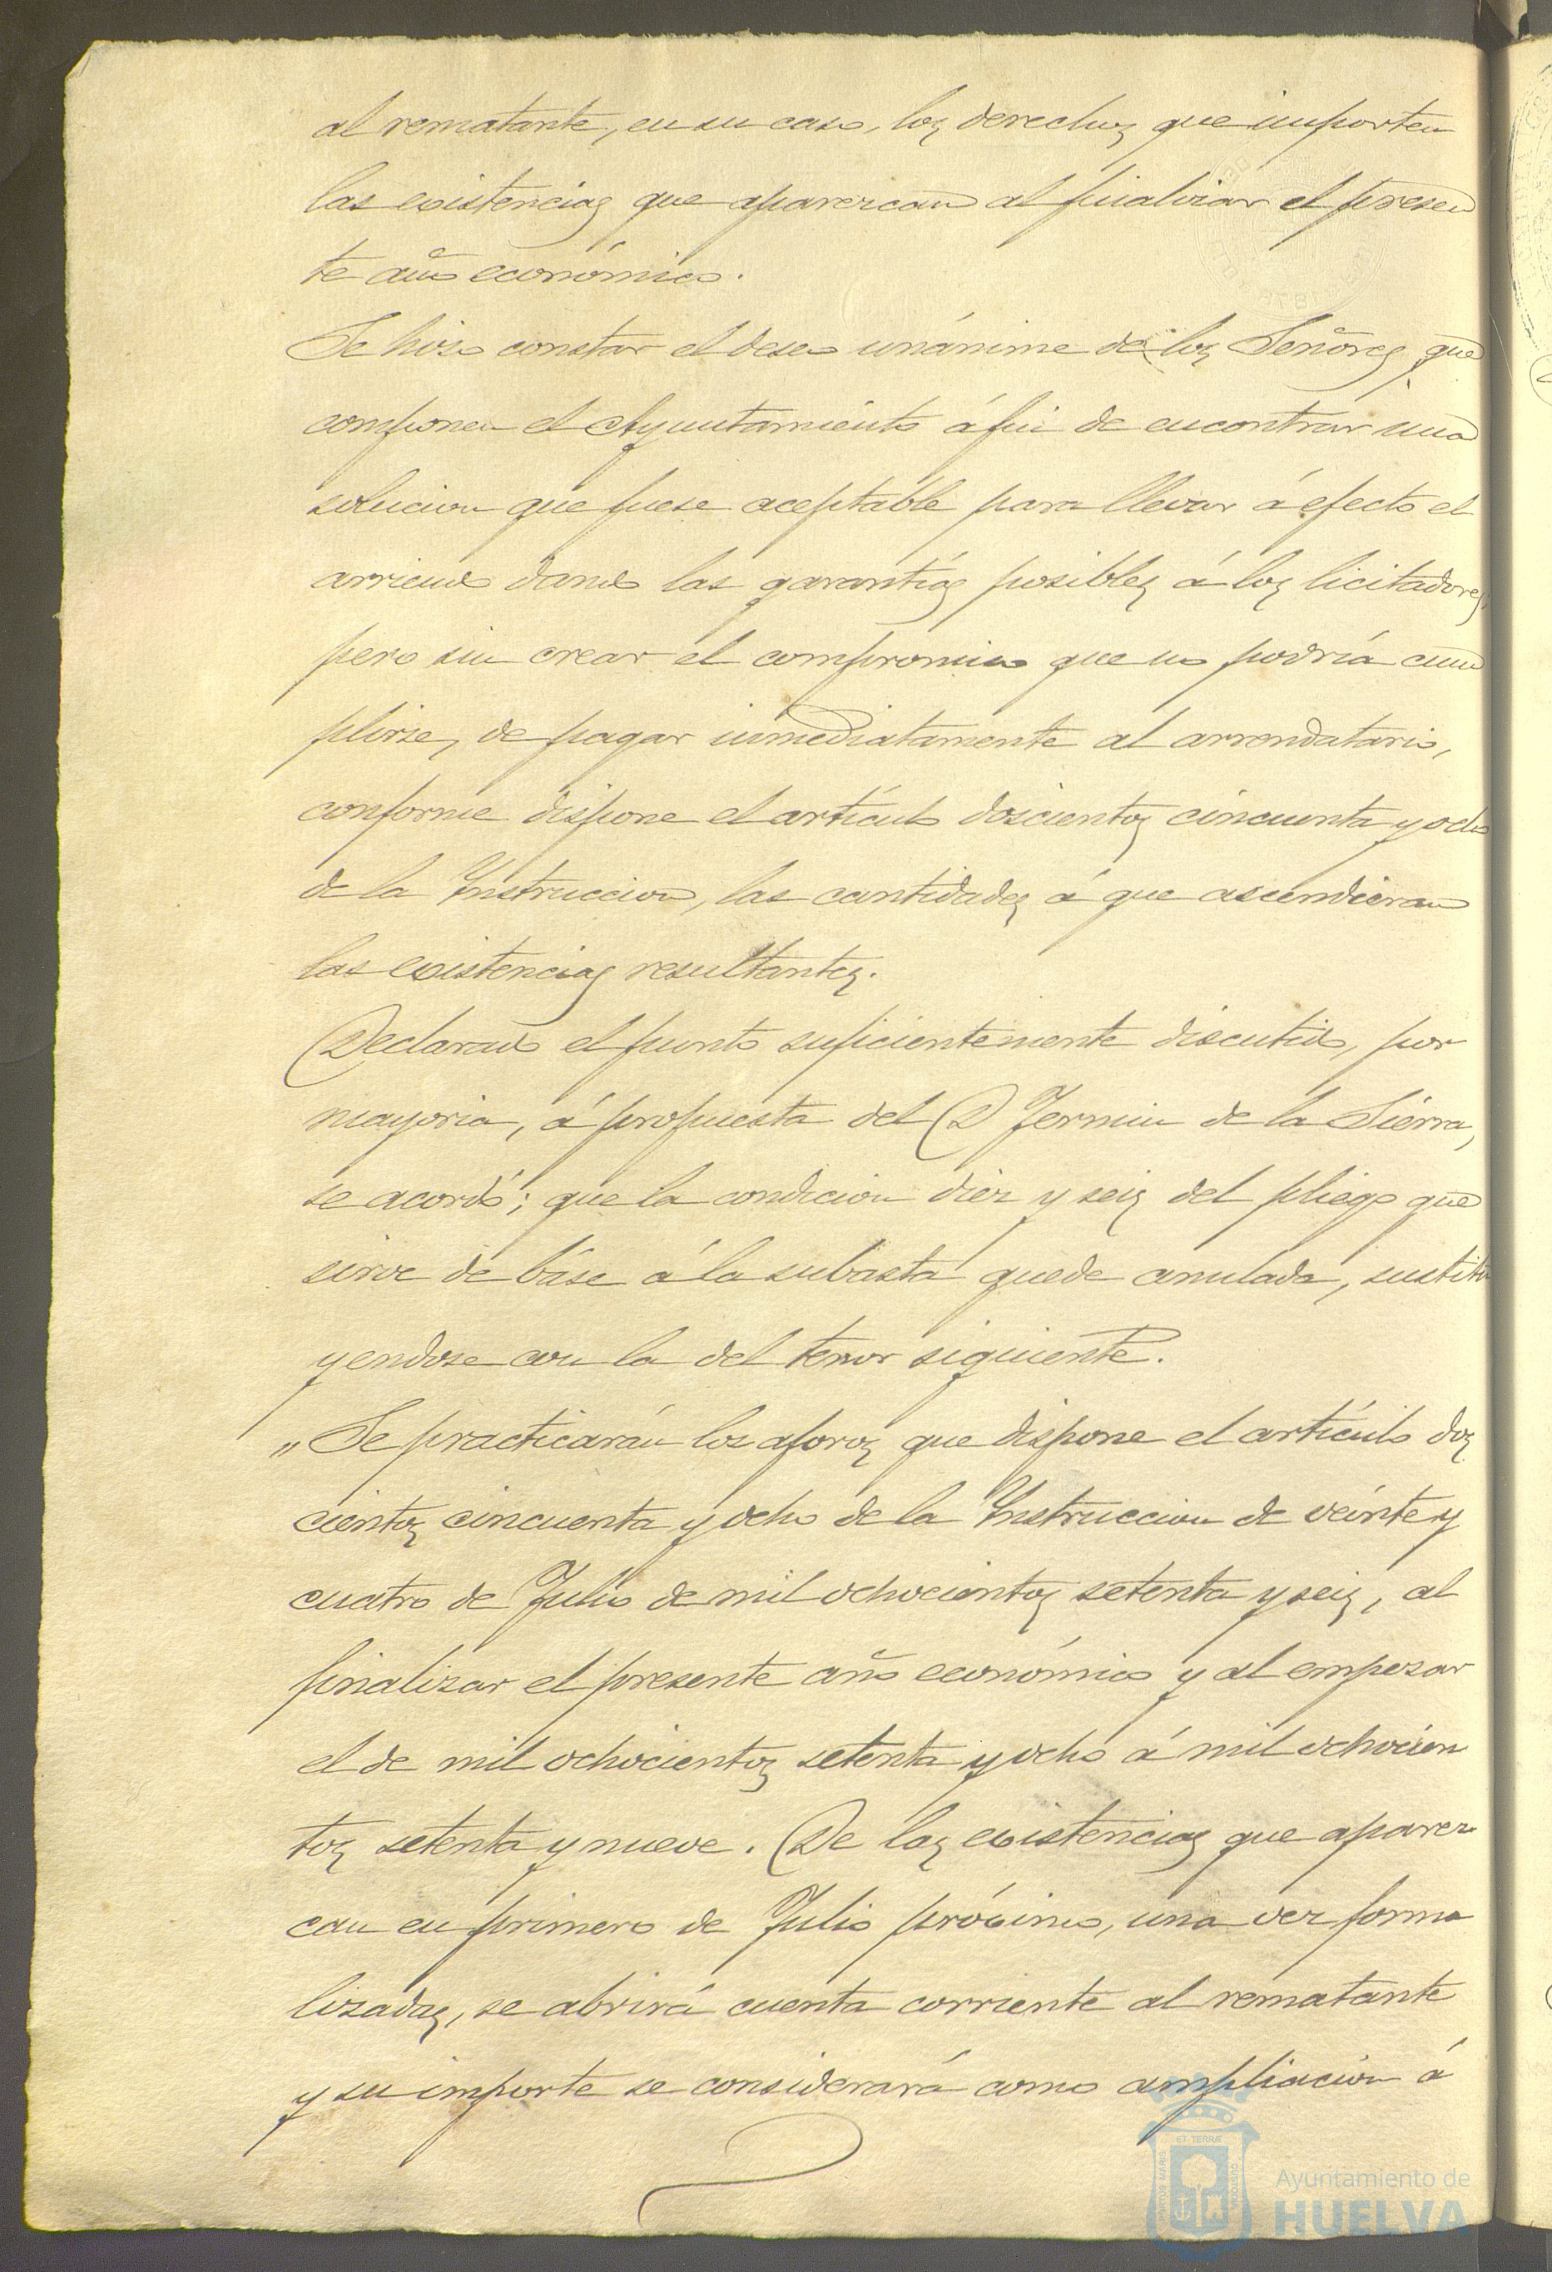 al rematante, en su caso, los derechos que importen
las existencias que aparezcan al finalizar el presen
te año económico.
Se hizo constar el deseo unánime de los Señores que
componen el Ayuntamiento á fin de encontrar una
solucion que fuese aceptable para llevar á efecto el
arriendo dando las garantías posibles á los licitadores,
pero sin crear el compromiso que no podría cum
plirse, de pagar inmediatamente al arrendatario,
conforme dispone el artículo doscientos cincuenta y ocho
de la Instruccion, las cantidades á que ascendieran
las existencias resultantes.
Declarado el punto suficientemente discutido, por
mayoria, á propuesta del D. Fermin de la Sierra,
se acordó; que la condicion diez y seis del pliego que
sirve de báse á la subasta quede anulada, sustitu
yendose con la del tenor siguiente.
„Se practicarán los aforos que dispone el artículo dos
cientos cincuenta y ocho de la Instruccion de veinte y
cuatro de Julio de mil ochocientos setenta y seis, al
finalizar el presente año económico y al empezar
el de mil ochocientos setenta y ocho á mil ochocien
tos setenta y nueve. De las existencias que aparez
can en primero de Julio próximo, una vez forma
lizadas, se abrirá cuenta corriente al rematante
y su importe se considerará como ampliación á
Ayuntamiento de
HUELVA